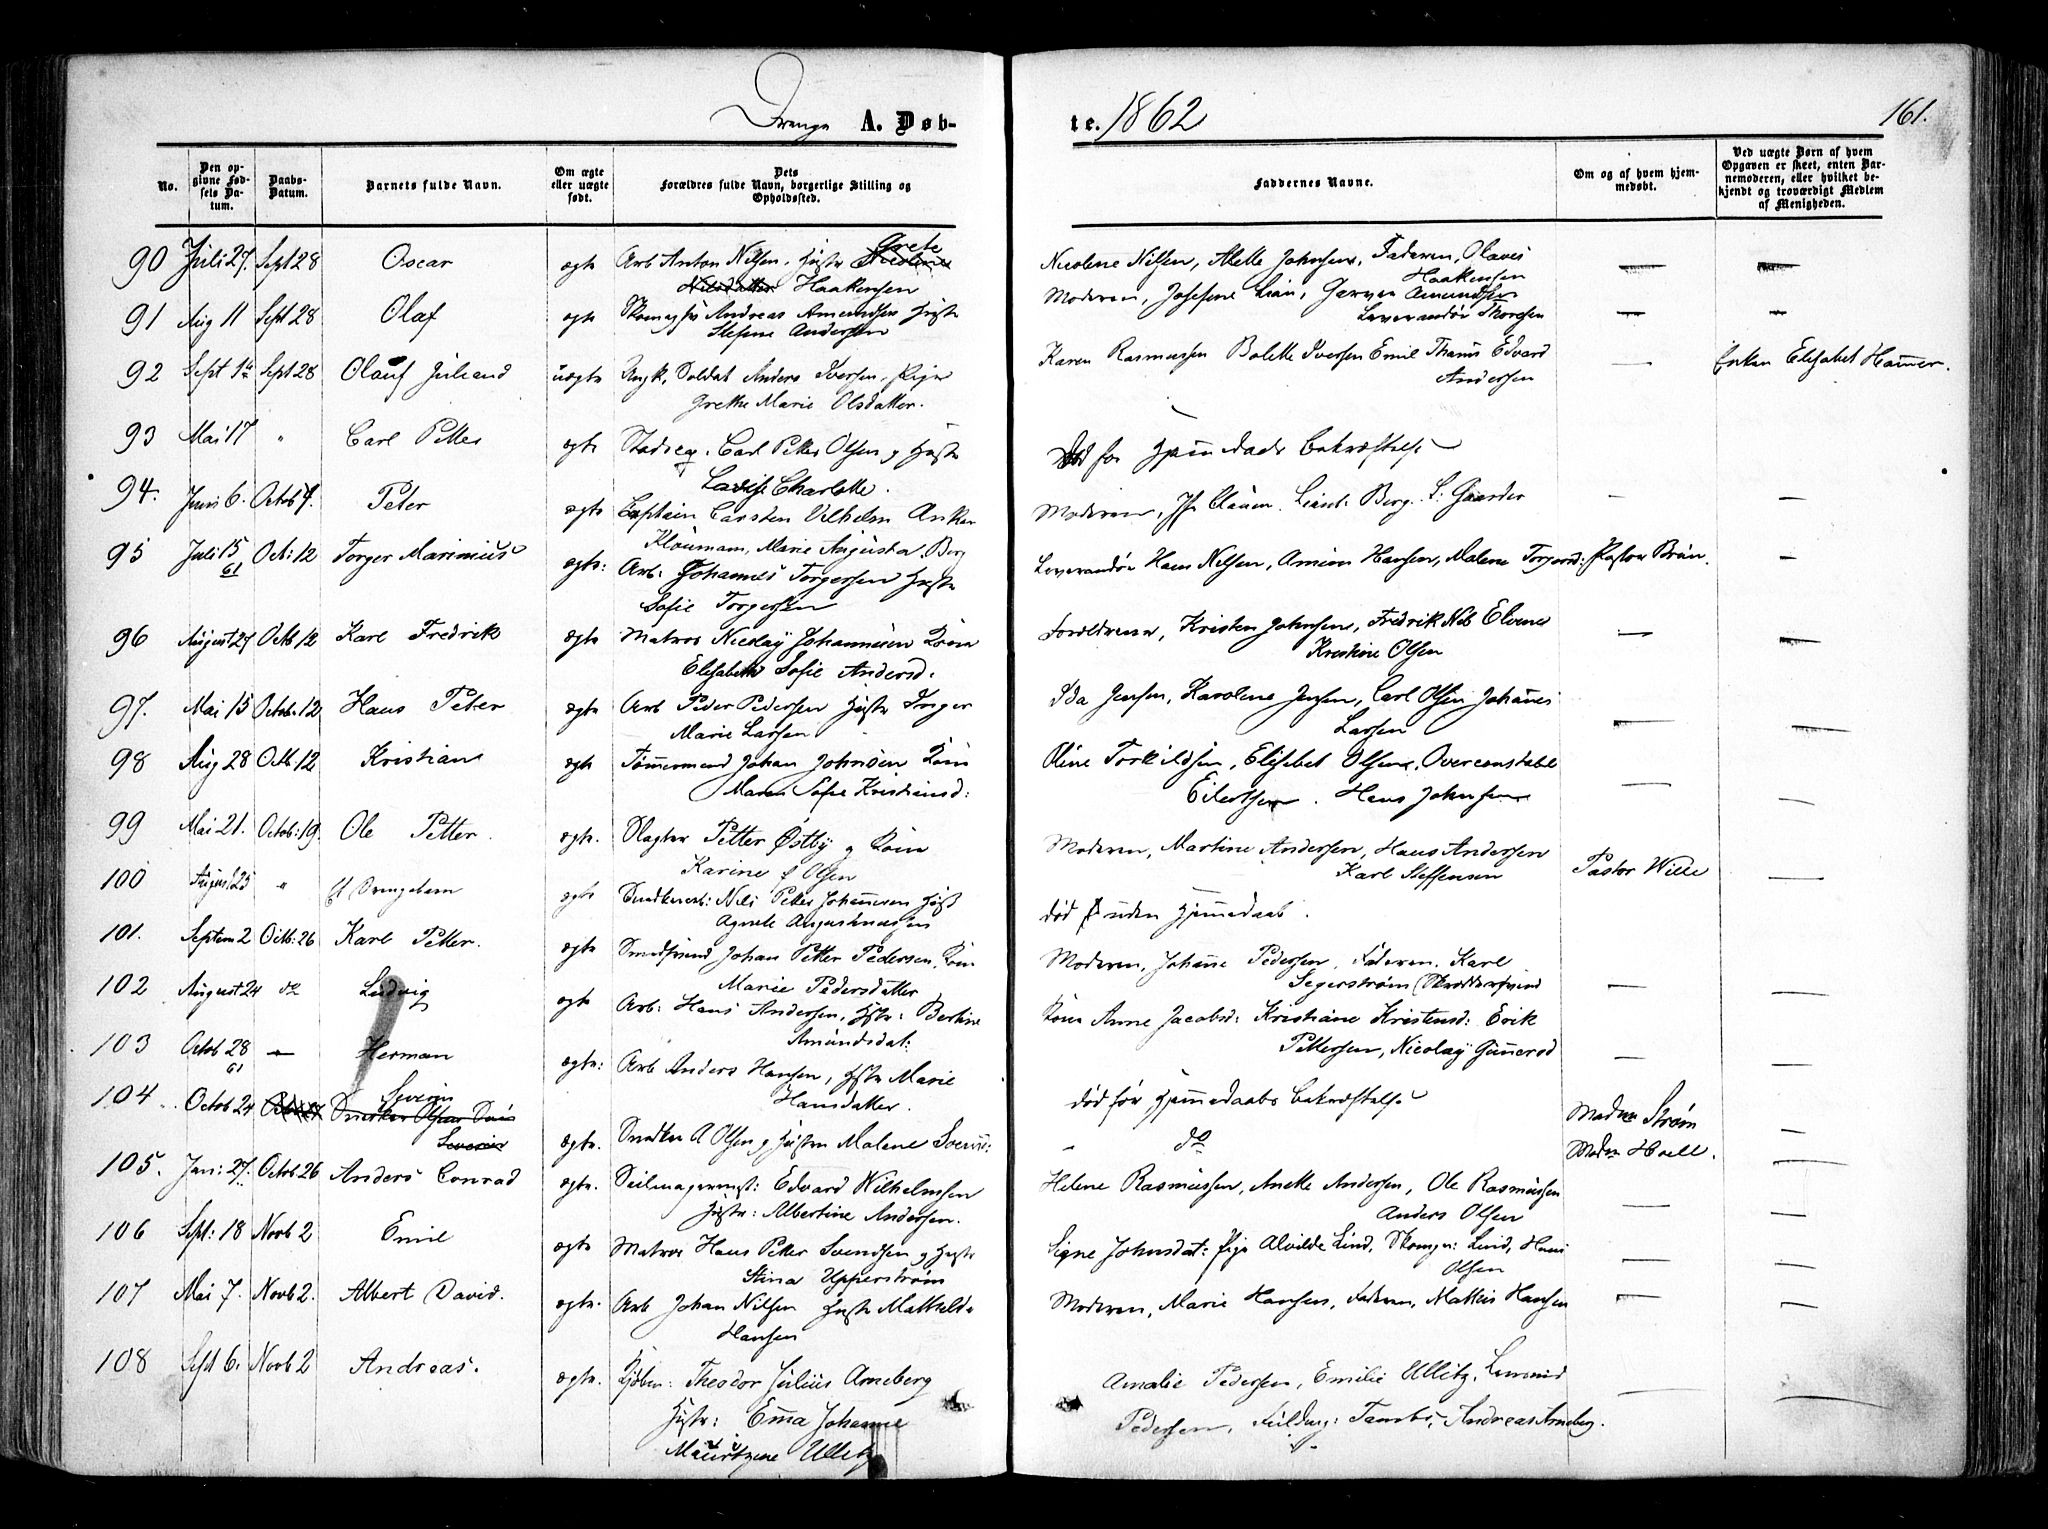 Drenge A. Døb-
te. 1862
161.
No.
Den op-
givne Fød-
sels Da-
tum.
Daabs-
Datum.
Barnets fulde Navn.
Om ægte
eller uægte
født.
Dets
Forældres fulde Navn, borgerlige Stilling og
Opholdssted.
Faddernes Navne.
Om og af hvem hjem-
medøbt.
Ved uægte Børn af hvem
Opgaven er skeet, enten Bar-
nemoderen, eller hvilket be-
kjendt og troværdigt Medlem
af Menigheden.
90 Juli 27. Sept 28 Oscar ægte Arb Anton Nilsen, Hustr Grete
Haakensen
Nicolene Nilsen, Johnsen, Faderen, Olaves
Haakensen
91 Aug 11 Sept 28 Olaf ægte Andreas Amundsen Hustr
Stefine Andersen
Moderen, Josefine Lian, Garver Amundsen
Leverandør Thoresen
92 Sept 1 Sept 28 Olauf Juliand uægte Soldat Anders Iversen, Pige
Grethe Marie Olsdatter.
Karen Rasmussen Bolette Iversen Emil Edvard
Andersen
Enken Elisabet Hammer.
93 Mai 17 " Carl Petter ægte Carl Petter Olsen og Hustr
Lovise Charlotte.
Død før Hjemmedaab Bekræftelse
94. Juni 6. Octob 7. Peter ægte Captain Carsten Vilhelm Anker
Kloumann, Marie Augusta Berg
Moderen, Berg. Gaarder
95 Juli 15 Oct: 12 Torger Marinius ægte: Arb: Johannes Torgersen Hustr
61
Sofie Torgersen
Leverandør Hans Nilsen, Hansen, Malene Torgersd: Pastor Brun.
96 August 27 Octb 12 Karl Fredrik ægte Matros Nicolay Johannesen Kone
Elisabeth Sofie Andersd.
Forældrene, Kristen Johnsen, Fredrik
Kristine Olsen
97. Mai 15 Octob. 12 Hans Peter ægte Arb Peder Pedersen Hustr Inger
Marie Larsen
Ida Jensen, Karolene Jensen, Carl Olsen Johannes
Larsen
98 Aug 28 Octb. 12 Kristian ægte Tømmermand Johan Johnsen Kone
Maren Sofie Kristiansd:
Oline Torkildsen, Elisabet Olsen, Overconstabel
Eilertsen. Hans Johnsen
99 Mai 21. Octob: 19. Ole Petter. ægte. Slagter Petter Østby og Kone
Karine f Olsen
Moderen, Martine Andersen, Hans Andersen
Karl Steffensen
Pastor Wille
100 August 25 " Et Drengebarn ægte Snedkersv: Nils Petter Johannesen Hust
Agnete Augustinussen
død uden Hjemmedaab.
101. Septem 2 Octb: 26 Karl Petter. ægte Johan Petter Pedersen, Kone
Marie Pedersdatter
Moderen, Johanne Pedersen, Faderen, Karl
Segerstrøm (Skræddersvend
102 August 24 do Ludvig ægte Arb: Hans Andersen, Hstr: Bertine
Amundsdat:
Kone Anne Jacobsd: Kristiane Kristensd: Erik
Pettersen, Nicolay Gunnersd
103 Octob 28 Herman ægte: Arb Anders Hansen, Hstr Marie
61
Hansdatter.
død før Hjemmedaabs Bekræftelse
Madm Strøm
104 Octob 24 Severin ægte. Snedker A Olsen og Hustru Malene
" do
Madm Hoell.
105. Jan: 27. Octob 26 Anders Conrad ægte. Seilmagermst: Edvard Wilhelmsen
Hustr: Albertine Andersen.
Helene Rasmussen, Anette Andersen, Ole Rasmussen
Anders Olsen
106 Sept: 18 Novb 2 Emil ægte Matros Hans Petter Svendsen og Hustr
Stina Upperstrøm
Signe Johnsdat: Pige Alvilde Lind, Skomgr: Lind, Hans
Olsen
107 Mai 7. Novb 2. Albert David. ægte. Arb Johan Nilsen Hustr Mathilde
Hansen
Moderen, Marie Hansen, Faderen, Mathis Hansen
108 Sept 6. Novb 2 Andreas. ægte. Kjøbm: Theodor Julius Arneberg
Hustr: Emma Johanne
Mauritzene Ullitz
Amalie Pedersen, Emilie Ullitz,
Pedersen, Fuldmg: Tambs, Andreas Arneberg.